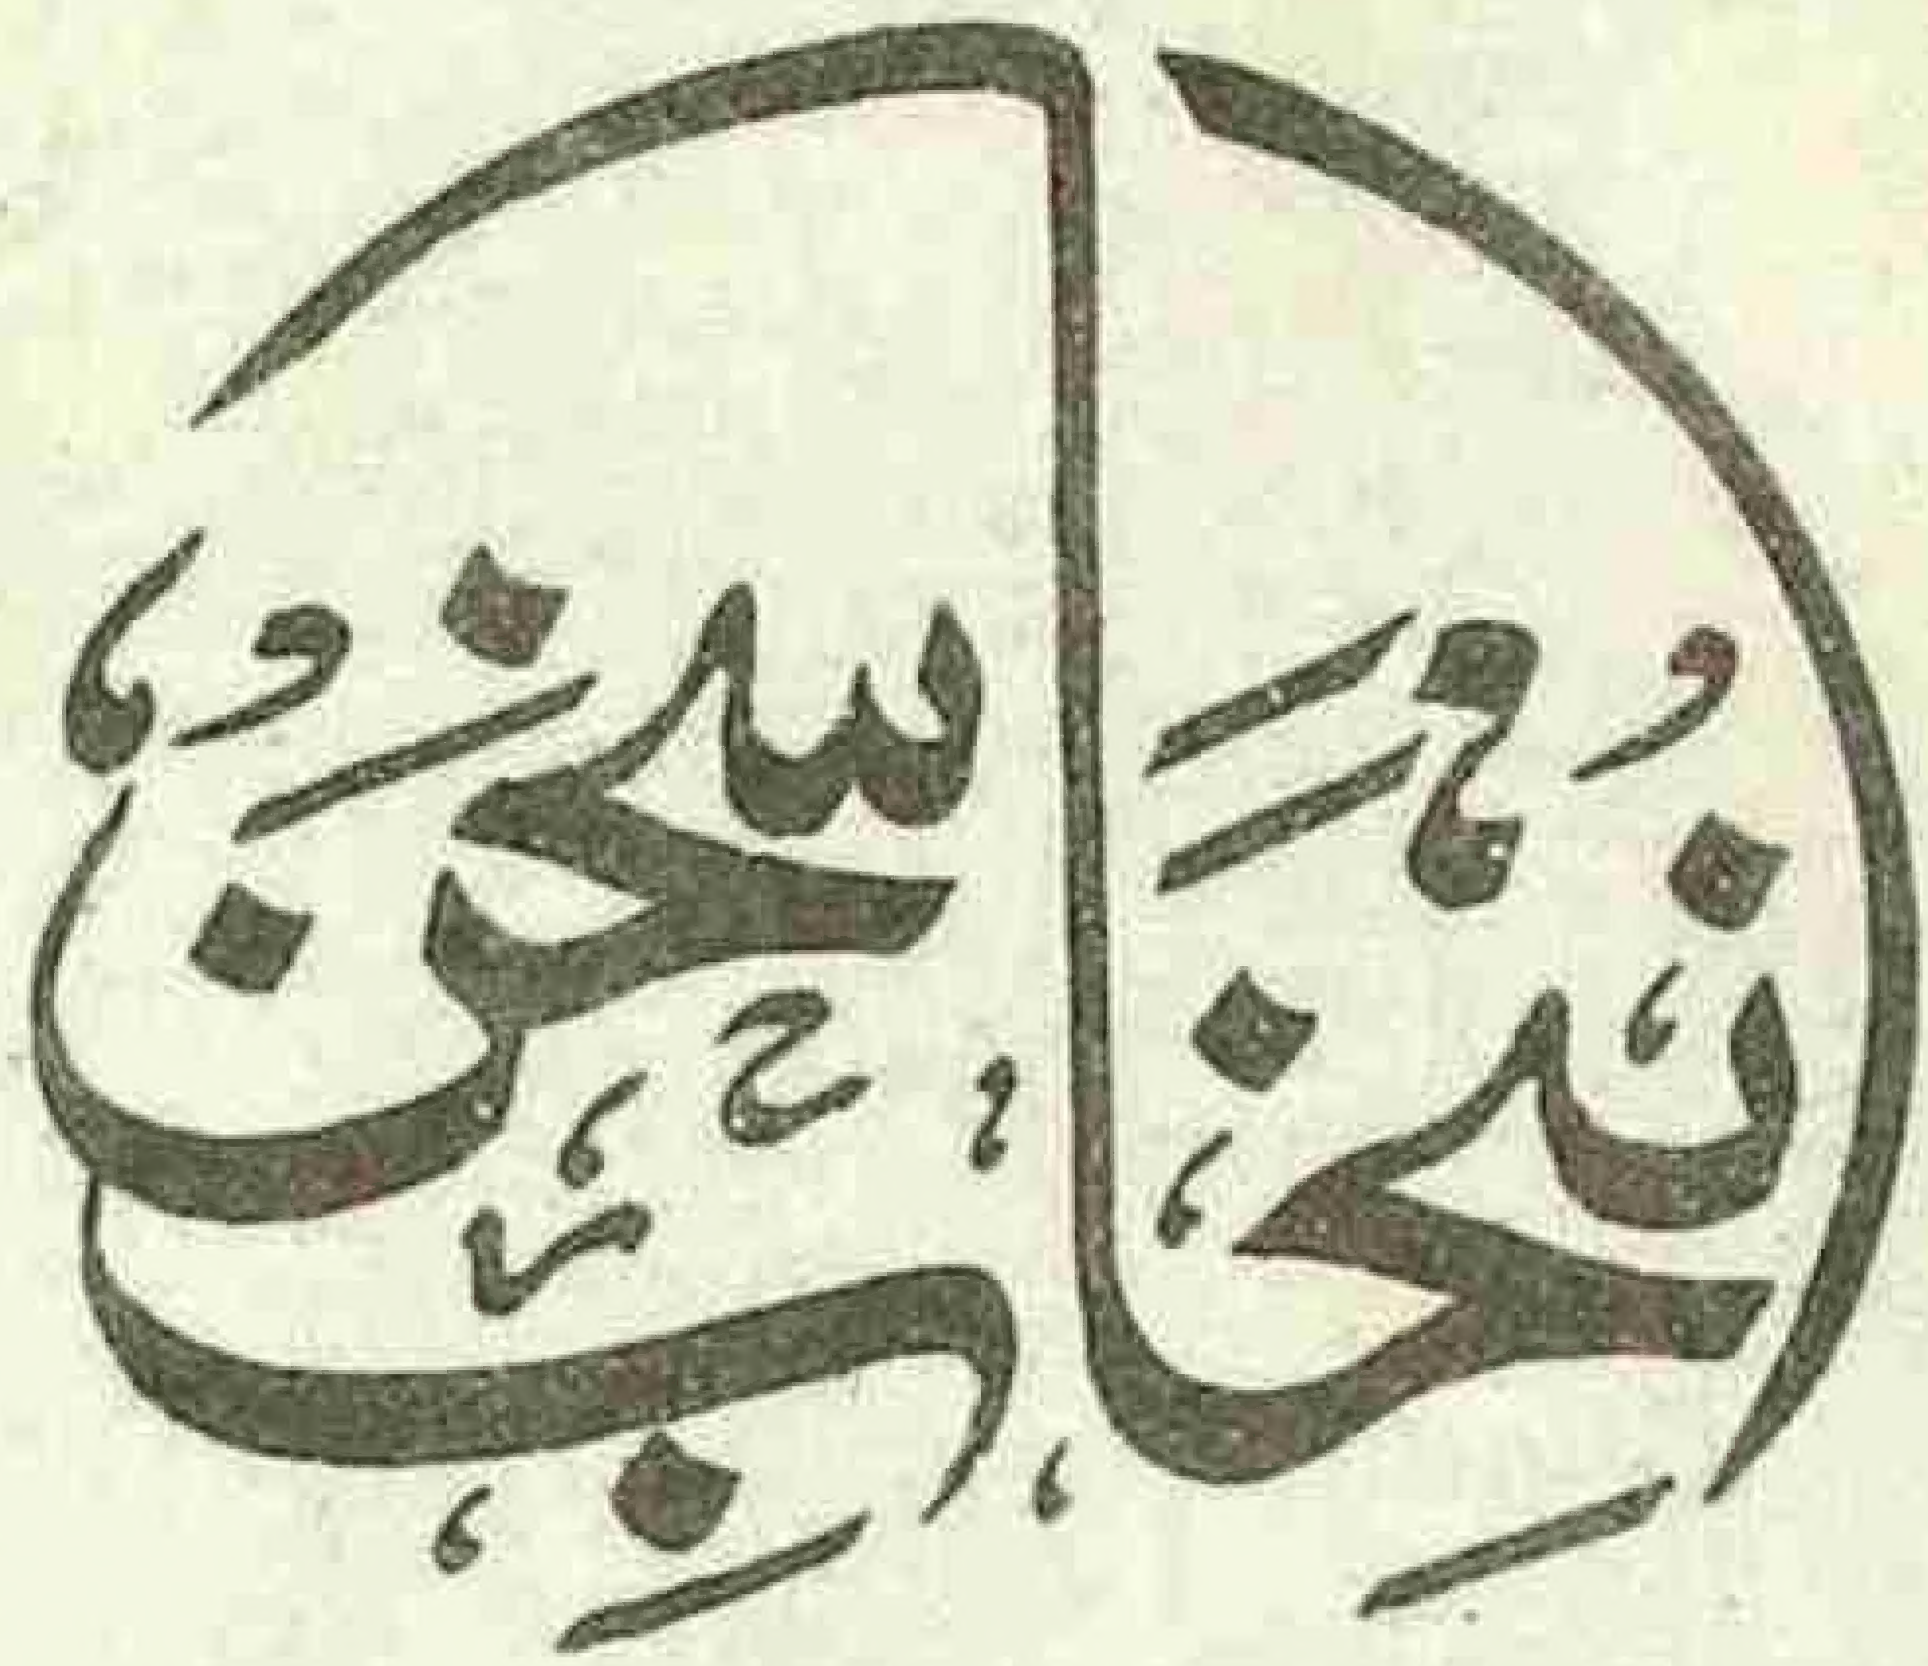 انتخاب سخن